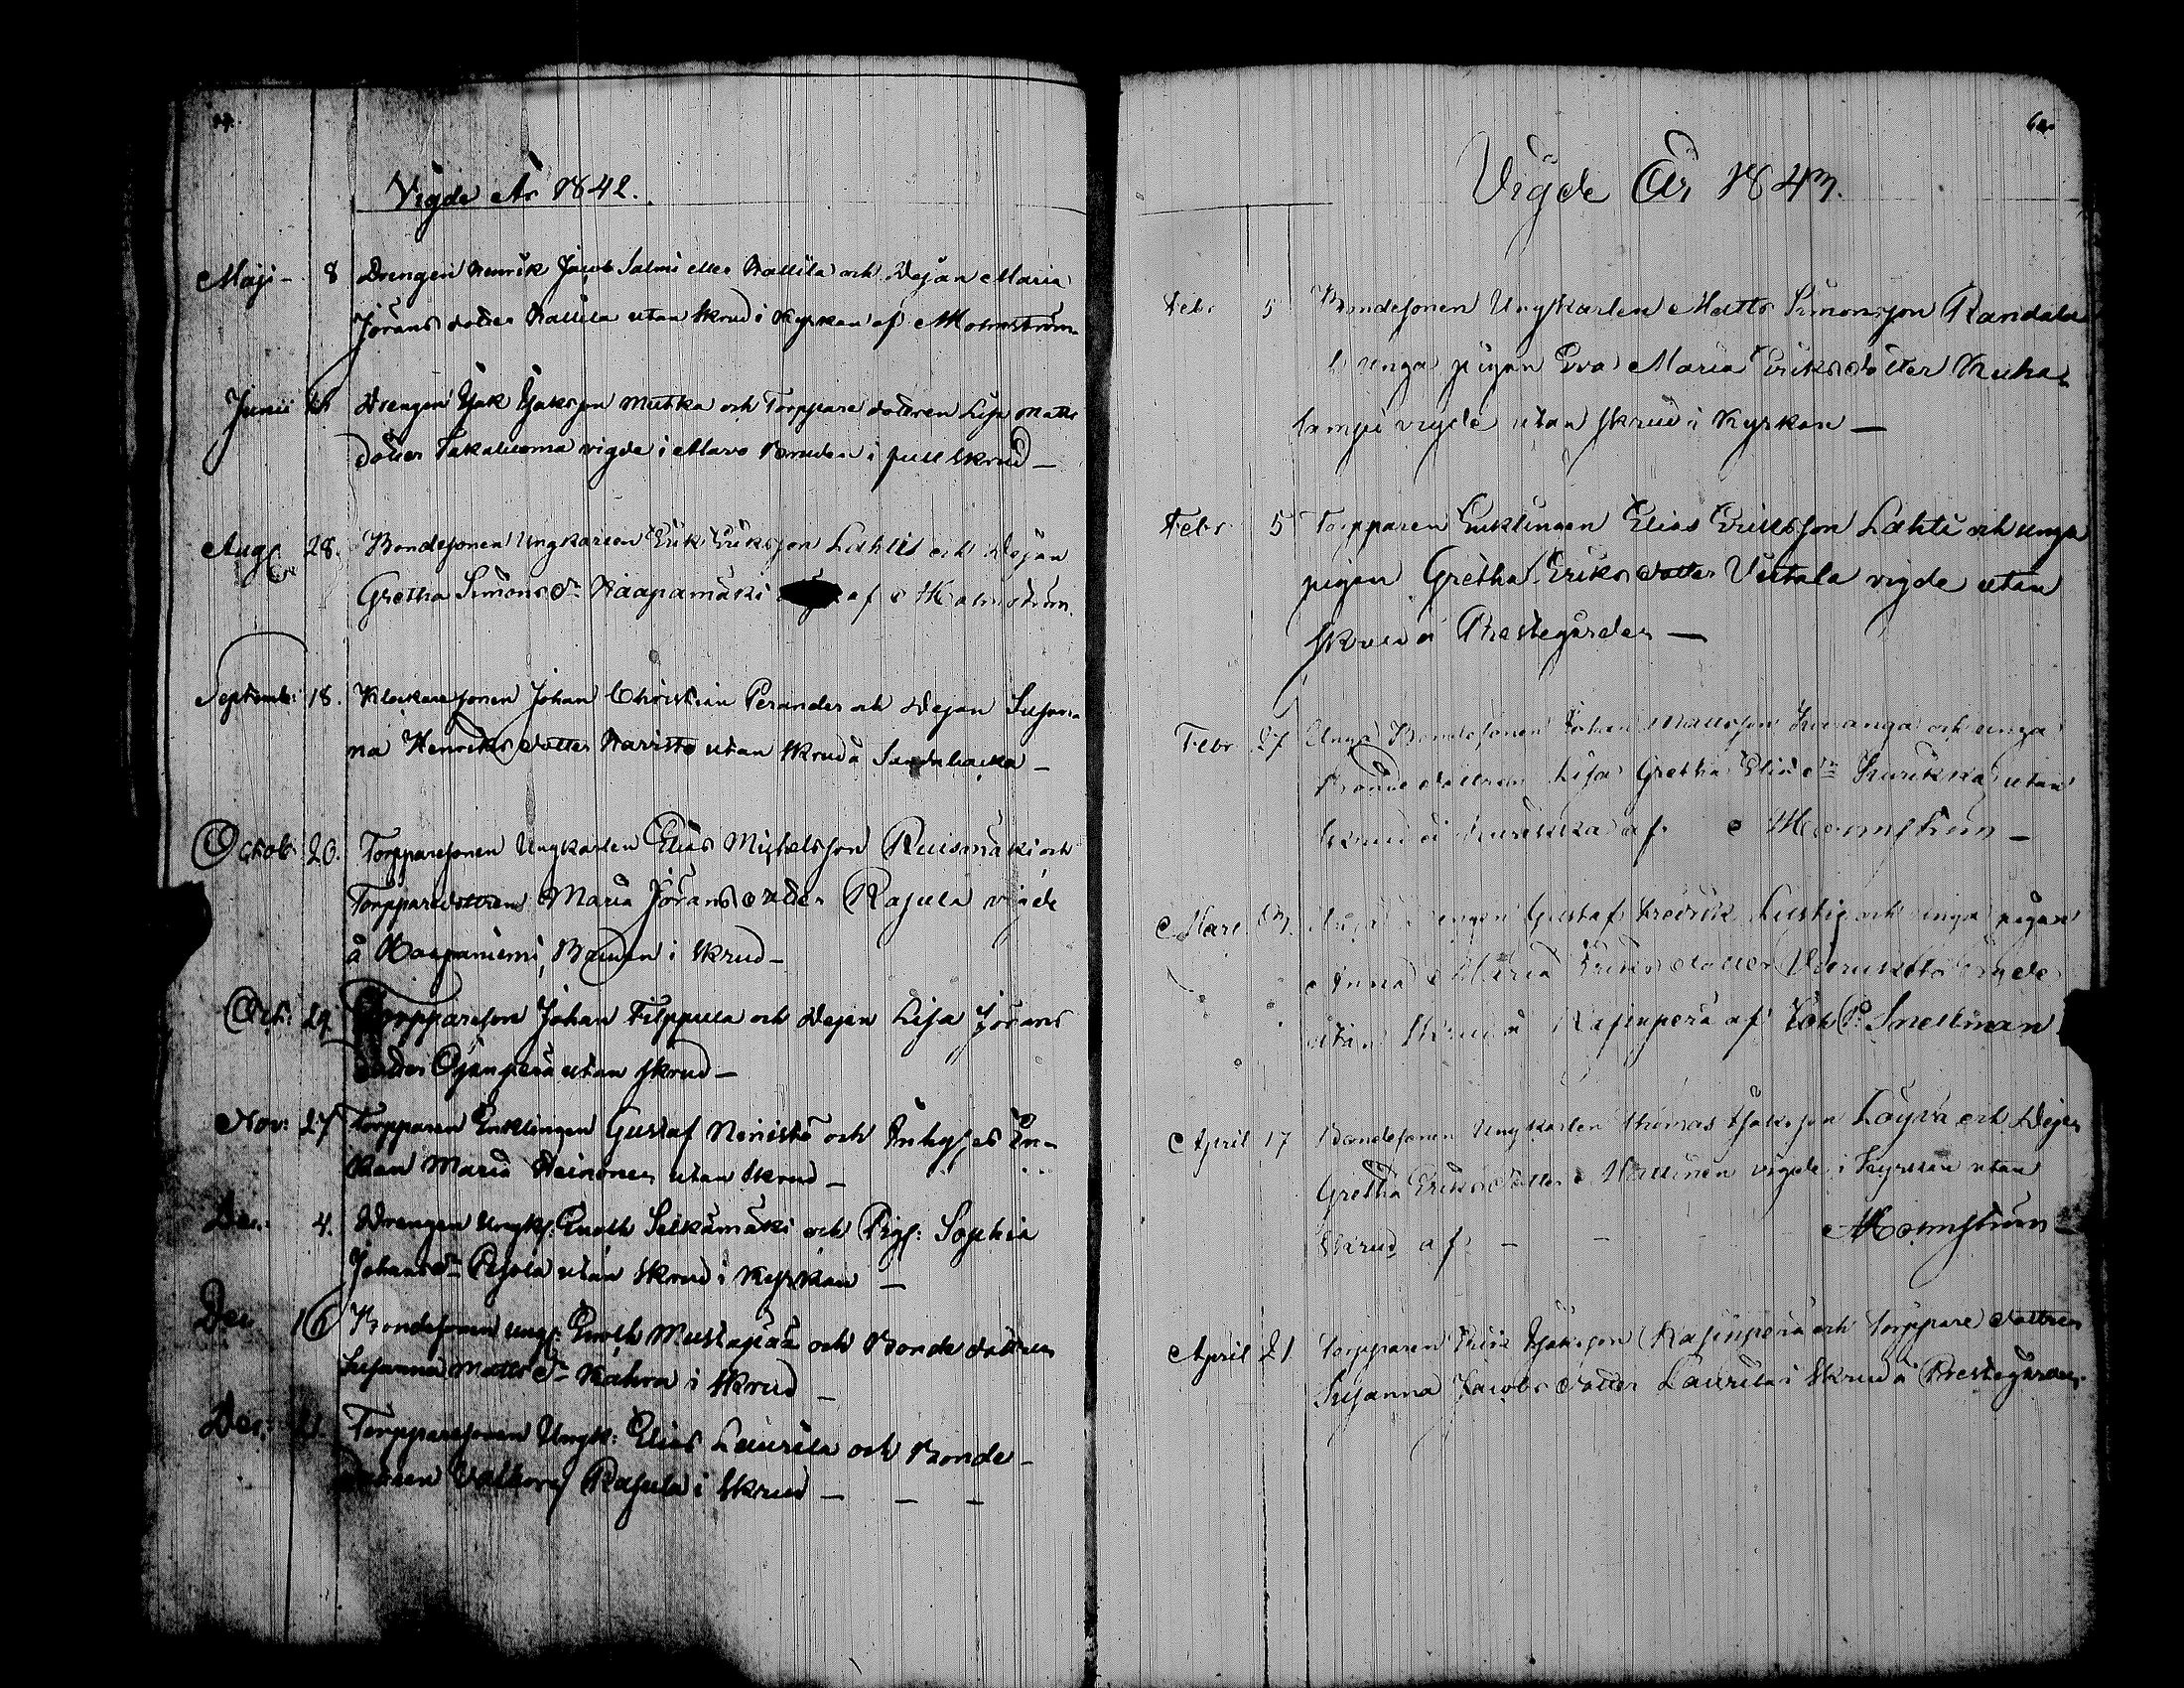 Vigde År 1842.
Maji - 8 Drengen Henrik Jacob Salmi eller Kallila och Dejan Maria
Jörans dotter Kallila utan skrud i Kyrkan af Holmström
Junii Drengen Isak Isaksson Mutka och Torppare dottren Lisa Matts
dotter Takaluoma vigde i Alavo Bruden i full skrud —
Aug: 28. Bondesonen Ungkarlen Erik Eriksson Lahtis och Dejan
Gretha Simons dr Kaapamäki af Holmström.
Septemb: 18. Klockaresonen Johan Christian Perander och Dejan Susan-
na Henriks dotter Karisto utan skrud å Sandbacka —
Octob: 20. Torpparesonen Ungkarlen Elias Michelsson Ruismäki och
Torpparedottren Maria Jörans dotter Rajula vigde
å Haapaniemi, Bruden i skrud —
Oct: 29 Torppareson Johan Filppula och Dejen Lisa Jörans
dotter Ojanperä utan skrud —
Nov: 27 Torpparen Enklingen Gustaf Niinistö och Inhyses En-
kan Maria Heinonen utan skrud —
Dec: 4. Drengen Ungk: Enoch Selkämäki och Pig: Sophia
Johans dr Pesola utan skrud i Kyrkan —
Dec 16 Bondesonen ung: Enoch Mustapää och Bonde dottren
Susanna Matts dr Kahra i skrud —
Dec: Torpparesonen Ungk: Elias Laurila och Bonde-
dottren Valborg Rajula i skrud — — —
Vigde År 1843.
Febr 5 Bondesonen Ungkarlen Matts Simonsson Randala
unga pigan Eva Maria Eriks dotter Kuha
lampi vigde utan skrud i Kyrkan —
Febr 5 Torpparen Enklingen Elias Eriksson Lahti och unga
pigan Gretha Eriks dotter Viitala vigde utan
skrud å Prestegården —
Febr 27 Unga Bondesonen Johan Mattsson och unga
Bonde dottren Lisa Gretha Elias dr Kurikka utan
skrud å Kurikka af Holmström —
Mars Unga Drengen Gustaf Fredrik Lustig och unga pigan
Anna Maria Eriks dotter vigde
utan skrud å Rajinperä af Joh P: Snellman
April 17 Bondesonen Ungkarlen Thomas Isaksson Löyvä och Dejen
Gretha Eriks dotter Hallinen vigde i Kyrkan utan
skrud af - - Holmström —
April 21 Torpparen Isaksson Rajinperä och Torppare dottren
Susanna Jacobs dotter Laurila i skrud å Prestegården.